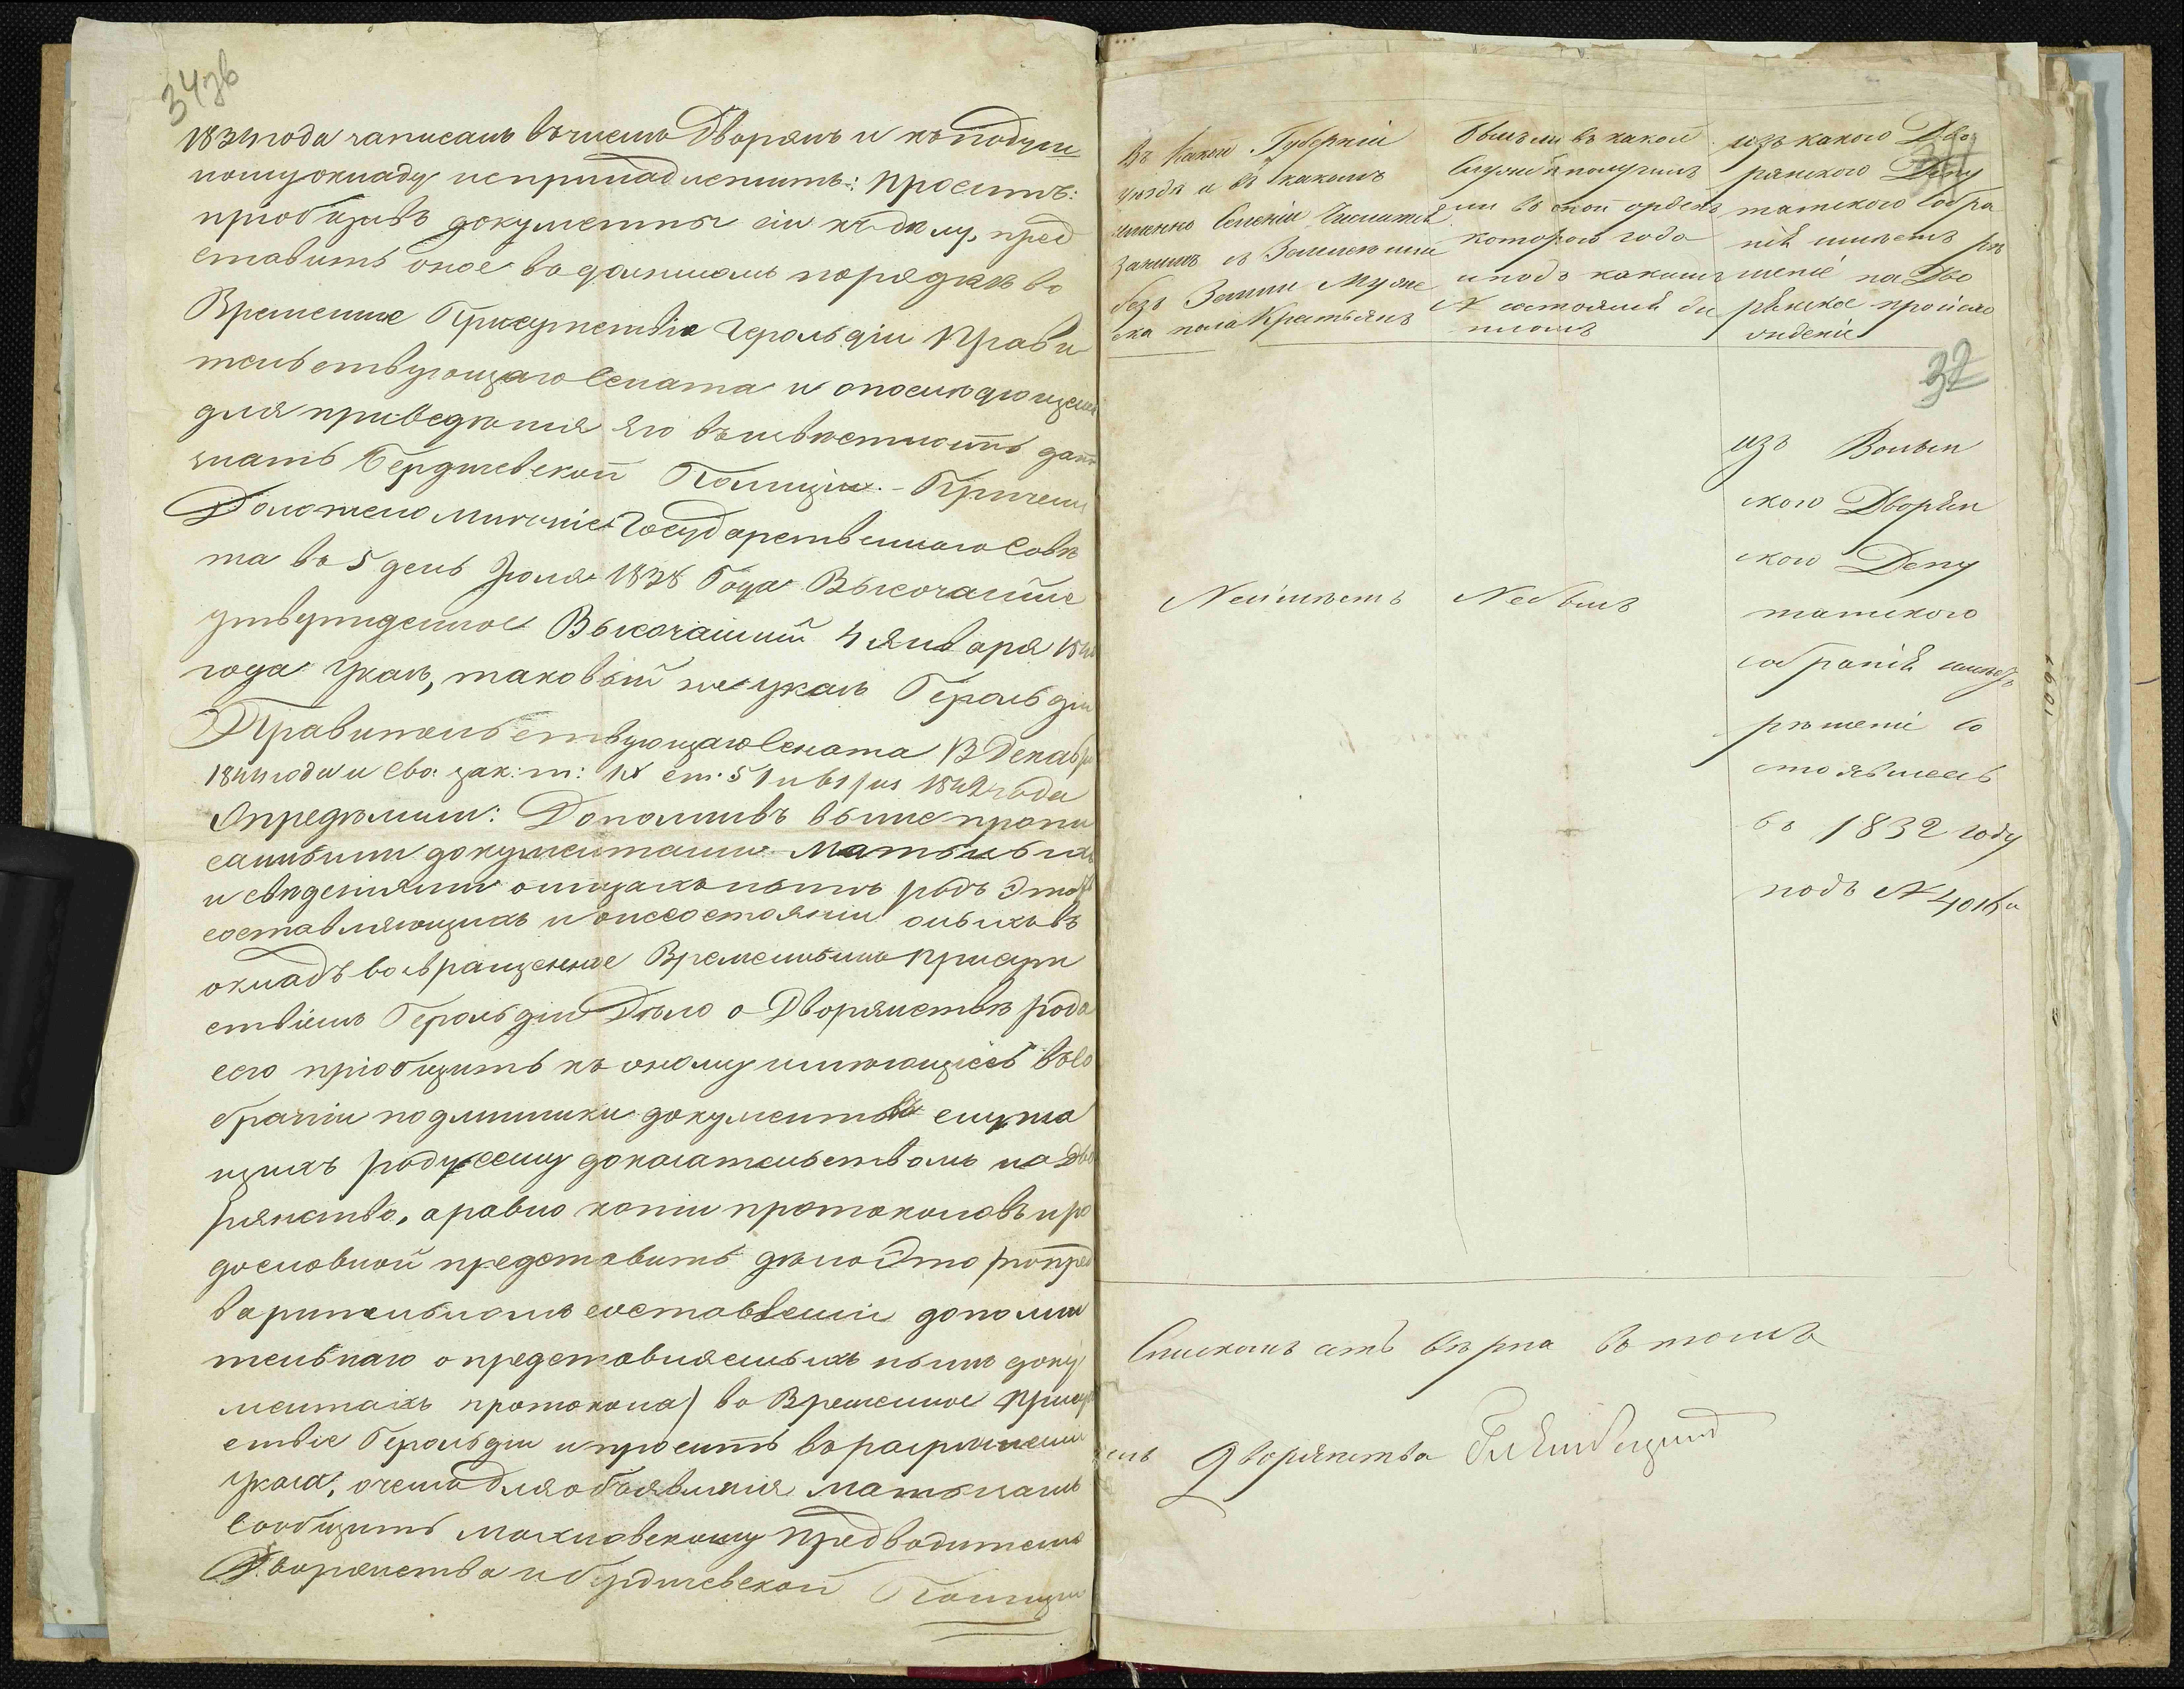 34 зв
1834 года записанъ въ число Дворянъ и къ подуш
ному окладу непринадлежитъ: проситъ:
пріобщивъ документы сіи къ делу, пред
ставить оное въ должномъ порядкѣ во
Временное Присутствіе Герольдіи Прави
тельствующаго Сената и опослѣдующемъ
для приведенія его въ извѣстность дать
знать Бердичевской Полиціи. - Причемъ
Доложено мнѣніе Государственнаго Совѣ
та въ 5 день Іюля 1838 Года Высочайше
утвержденное Высочайший 4 Января 184
года указъ, таковый же указъ Герольдіи
Правительствующаго Сената 13 Декабря
1844 года и Сво: зак: т: IX ст: 51 и 1842 года
Опредѣлили: Дополнивъ выше пропи
санными документами
и свѣденіями о лицахъ нынѣ родъ этотъ
составляющихъ и онесостояніи оныхъ въ
окладѣ возвращенное Временнымъ Присут
ствіемъ Герольдіи Дѣло о Дворянствѣ рода
сего пріобщить къ оному имѣющіеся въ Со
браніи подлинники документовъ служа
щихъ роду сему доказательствомъ на Дво
рянство, а равно копіи протоколовъ и ро
дословной представить дѣло это /по пред
варительномъ составленіи дополни
тельнаго о представляемыхъ нынѣ доку
ментахъ протокола/ во Временное Присут
ствіе Герольдіи и просить въ разрѣшеніи
указа, о чемъ для объявленія
Сообщить Махновскому Предводителю
Дворянства и Бердичевской Полиціи
Въ какой Губерніи
уѣздѣ и въ какомъ
именно Селеніи Числится
занимъ съ Землею или
безъ Земли Муже
ска пола Крестьянъ
Былъ ли въ какой
Службѣ получилъ
ли въ оной орденъ
котораго года
и подъ какимъ
№ состоялся ди
пломъ
изъ какого Дво
рянского Депу
татского Собра
нія имѣетъ рѣ
шеніе на Дво
рянское происхо
жденіе
32
Неимѣетъ
Небылъ
изъ Волын
ского Дворян
ского Депу
татского
собранія имѣетъ
рѣшеніе со
стоявшееся
въ 1832 году
подъ № 401
Списокъ етъ вѣрна въ томъ
Дворянства